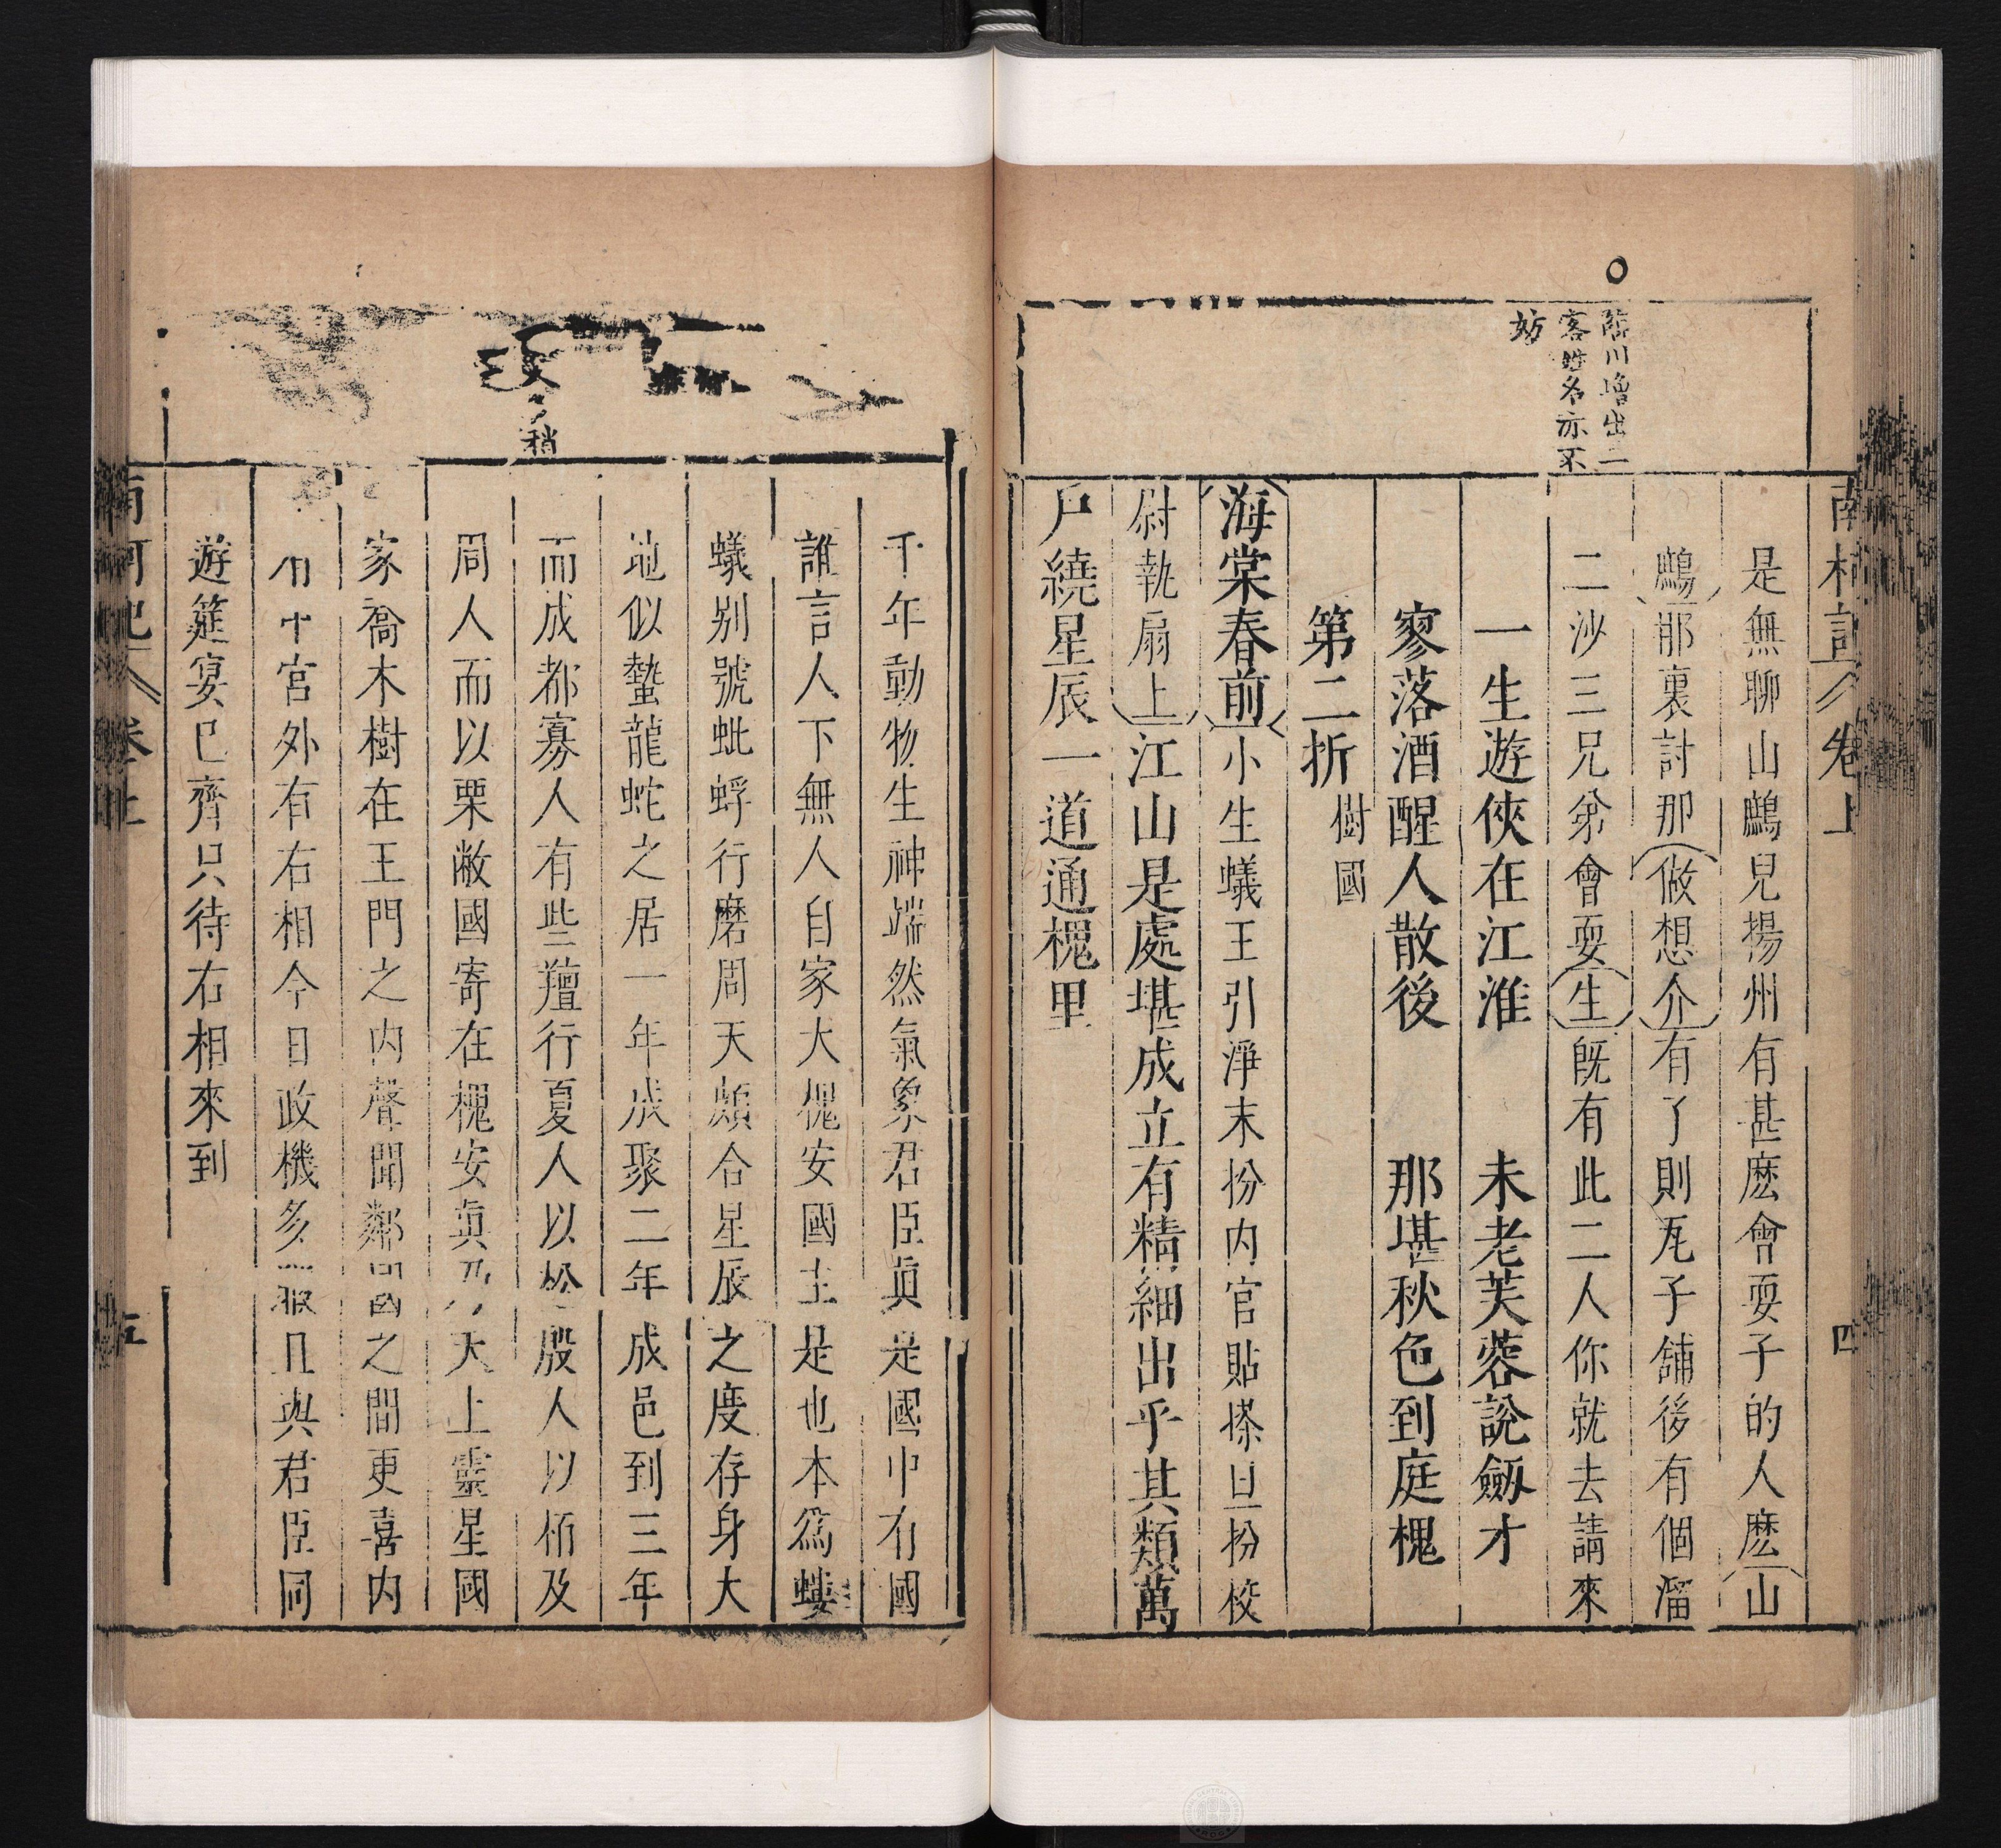 南柯記 卷上 四
臨川增出二
客姓名亦不
妨
是無聊山鷓兒揚州有甚麽會耍子的人麽山
鷓那裏討那做想介有了則瓦子舖後有個溜
二沙三兄弟會耍生旣有此二人你就去請來
一生遊俠在江淮 未老芙蓉說劔才
寥落酒醒人散後 那堪秋色到庭槐
第二折 樹國
海棠春前小生蟻王引淨末扮内官貼搽旦扮校
尉執扇上江山是處堪成立有精細出乎其類萬
戶繞星辰一道通槐里
稍
千年動物生神端然氣象君臣眞是國中有國
誰言人下無人自家大槐安國主是也本爲螻
蟻别號蚍蜉行磨周天頗合星辰之度存身大
地似蟄龍蛇之居一年成聚二年成邑到三年
而成都寡人有些羶行夏人以松殷人以栢及
周人而以栗敝國寄在槐安眞乃天上靈星國
家喬木樹在王門之内聲聞鄰國之間更喜内
有中宮外有右相今日政機多暇且與君臣同
遊筵宴已齊只待右相來到
南柯記 卷上 五